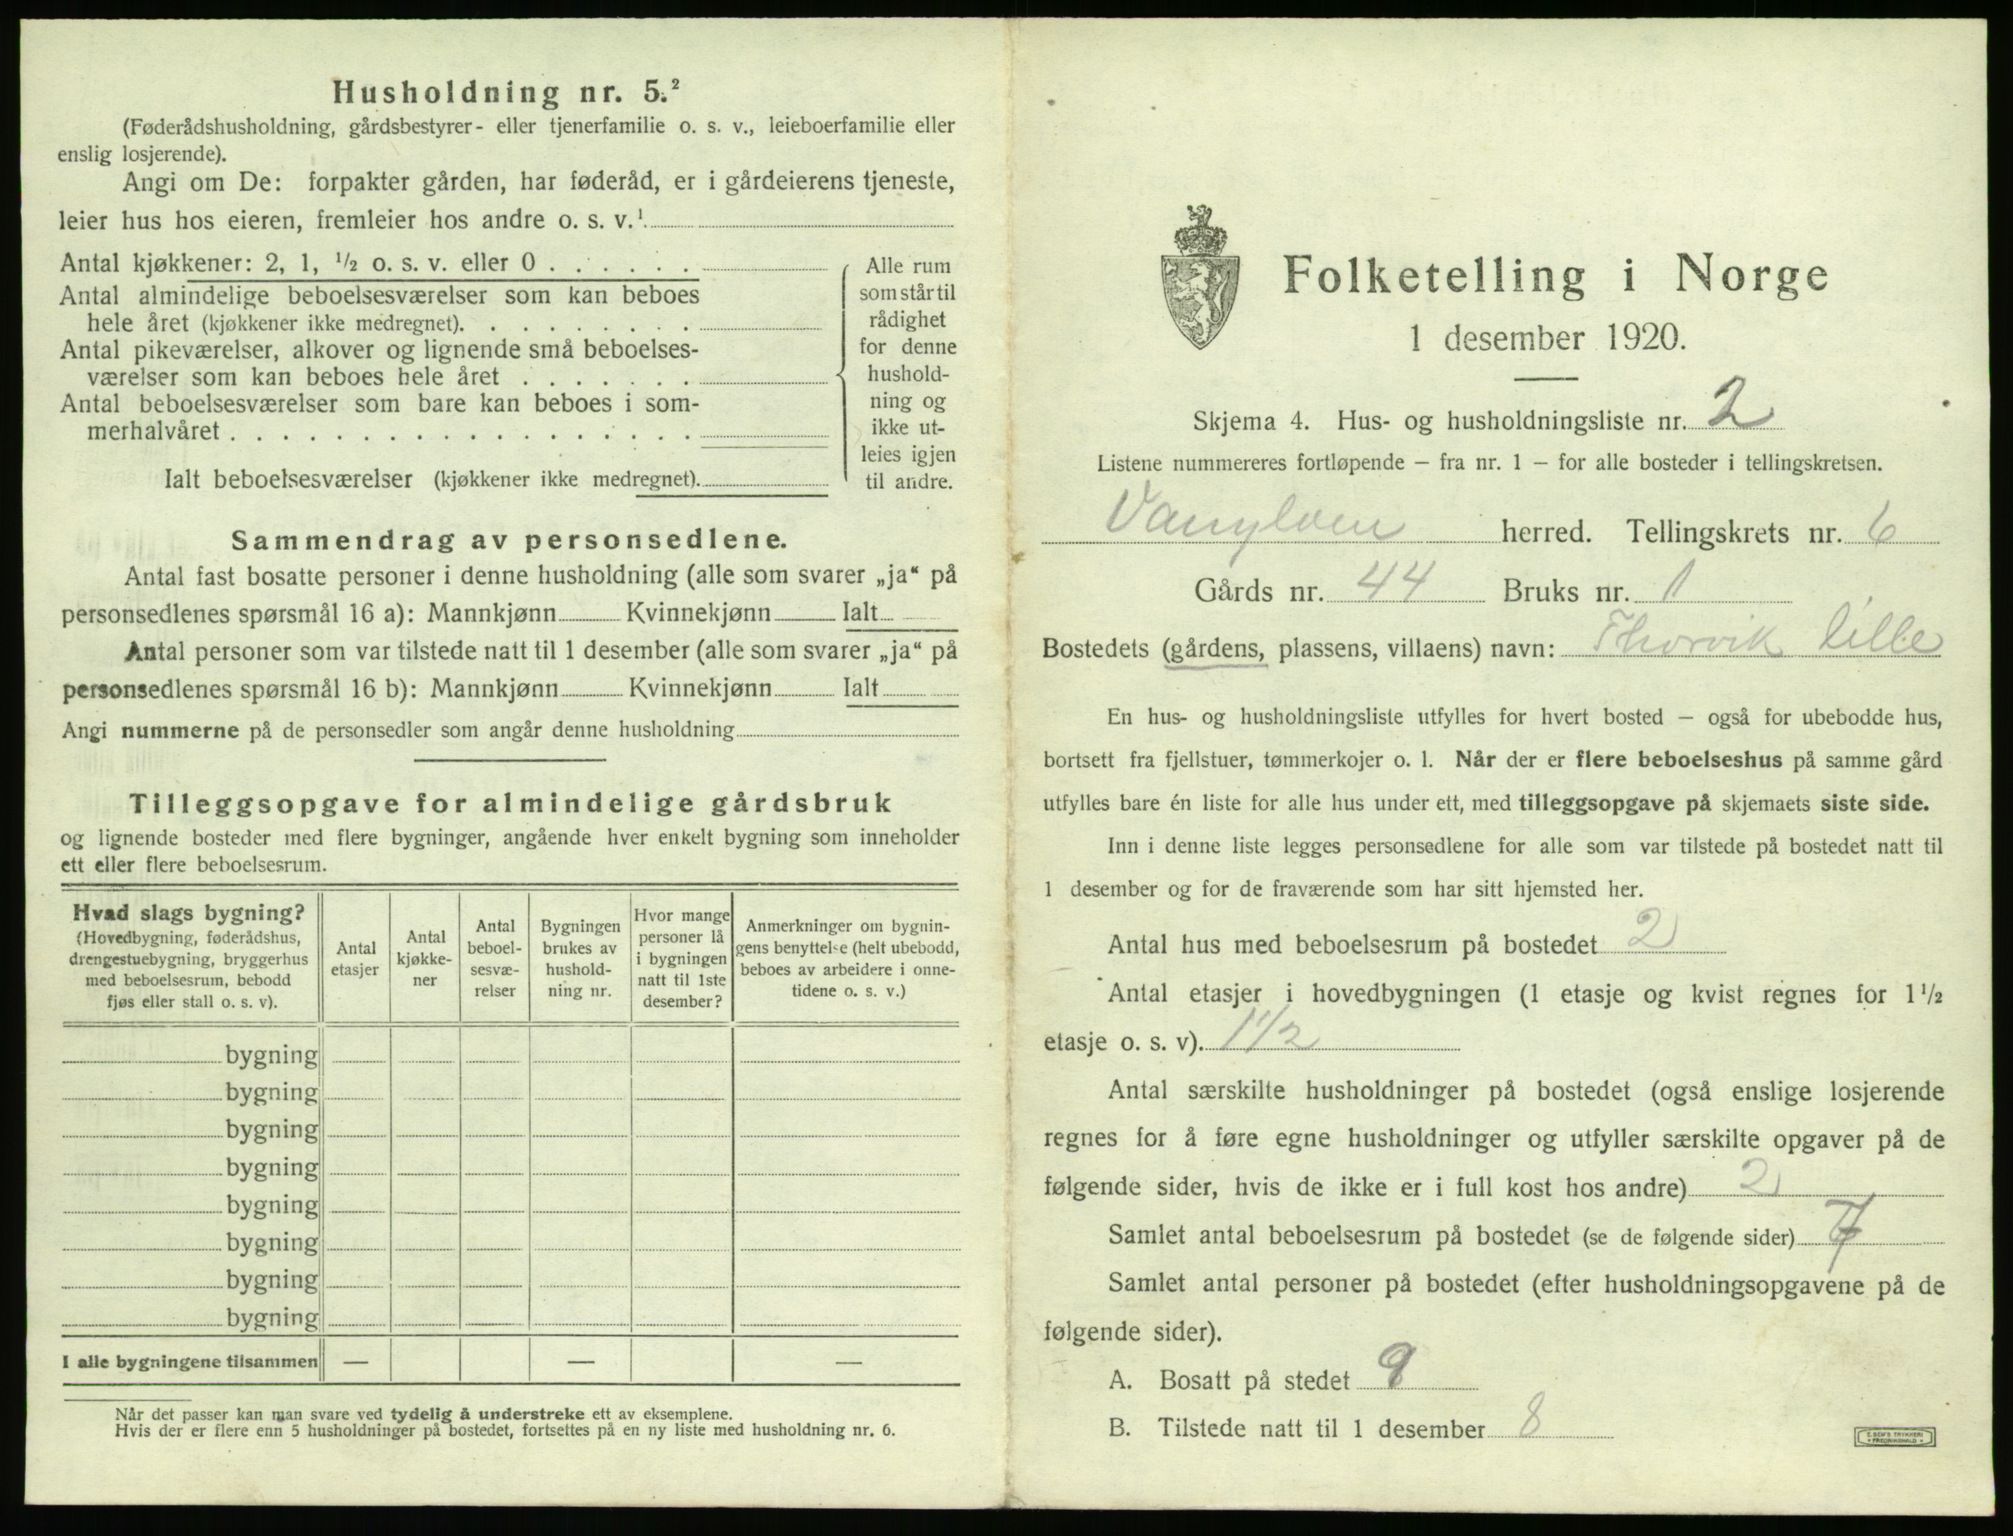 Husholdning nr. 5.²
(Føderådshusholdning, gårdsbestyrer- eller tjenerfamilie o. s. v., leieboerfamilie eller
enslig losjerende).
Angi om De: forpakter gården, har føderåd, er i gårdeierens tjeneste,
leier hus hos eieren, fremleier hos andre o. s. v.¹
Antal kjøkkener: 2, 1, ½ o. s. v. eller 0 . . . . . .
Antal almindelige beboelsesværelser som kan beboes
hele året (kjøkkener ikke medregnet). . . . . . . . .
Antal pikeværelser, alkover og lignende små beboelses-
værelser som kan beboes hele året . . . . . . .
Antal beboelsesværelser som bare kan beboes i som-
merhalvåret . . . . . . . . . . . . . . . . . .
Ialt beboelsesværelser (kjøkkener ikke medregnet).
Alle rum
som står til
rådighet
for denne
hushold-
ning og
ikke ut-
leies igjen
til andre.
Sammendrag av personsedlene.
Antal fast bosatte personer i denne husholdning (alle som svarer „ja“ på
personsedlenes spørsmål 16 a): Mannkjønn Kvinnekjønn Ialt
Antal personer som var tilstede natt til 1 desember (alle som svarer „ja“ på
personsedlenes spørsmål 16 b): Mannkjønn Kvinnekjønn Ialt
Angi nummerne på de personsedler som angår denne husholdning
Tilleggsopgave for almindelige gårdsbruk
og lignende bosteder med flere bygninger, angående hver enkelt bygning som inneholder
ett eller flere beboelsesrum.
Hvad slags bygning?
(Hovedbygning, føderådshus,
drengestuebygning, bryggerhus
med beboelsesrum, bebodd
fjøs eller stall o. s. v).
Antal
etasjer
Antal
kjøkke-
ner
Antal
beboel-
sesvæ-
relser
Bygningen
brukes av
hushold-
ning nr.
Hvor mange
personer lå
i bygningen
natt til 1ste
desember?
Anmerkninger om bygnin-
gens benyttelse (helt ubebodd,
beboes av arbeidere i onne-
tidene o. s. v.)
bygning
bygning
bygning
bygning
bygning
bygning
bygning
bygning
I alle bygningene tilsammen — — —
Når det passer kan man svare ved tydelig å understreke ett av eksemplene.
Hvis der er flere enn 5 husholdninger på bostedet, fortsettes på en ny liste med husholdning nr. 6.
Folketelling i Norge
1 desember 1920.
Skjema 4. Hus- og husholdningsliste nr. 2
Listene nummereres fortløpende – fra nr. 1 – for alle bosteder i tellingskretsen.
Vanylven herred. Tellingskrets nr. 6
Gårds nr. 44 Bruks nr. 1
Bostedets (gårdens, plassens, villaens) navn: Thorvik lille
En hus- og husholdningsliste utfylles for hvert bosted – også for ubebodde hus,
bortsett fra fjellstuer, tømmerkojer o. l. Når der er flere beboelseshus på samme gård
utfylles bare én liste for alle hus under ett, med tilleggsopgave på skjemaets siste side.
Inn i denne liste legges personsedlene for alle som var tilstede på bostedet natt til
1 desember og for de fraværende som har sitt hjemsted her.
Antal hus med beboelsesrum på bostedet 2
Antal etasjer i hovedbygningen (1 etasje og kvist regnes for 1½
etasje o. s. v). 1½
Antal særskilte husholdninger på bostedet (også enslige losjerende
regnes for å føre egne husholdninger og utfyller særskilte opgaver på de
følgende sider, hvis de ikke er i full kost hos andre) 2
Samlet antal beboelsesrum på bostedet (se de følgende sider) 7
Samlet antal personer på bostedet (efter husholdningsopgavene på de
følgende sider).
A. Bosatt på stedet 9
B. Tilstede natt til 1 desember 8